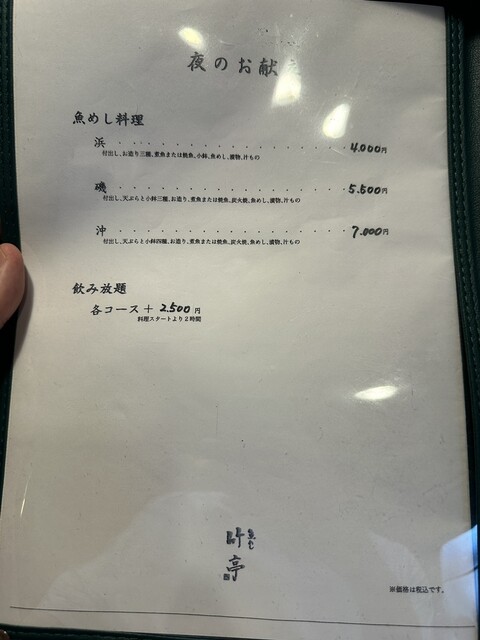 夜のお献
魚めし料理
浜 4,000円
付出し、お造り三種、煮魚または焼魚、小鉢、魚めし、漬物、汁もの
磯 5,500円
付出し、天ぷらと小鉢三種、お造り、煮魚または焼魚、炭火焼、魚めし、漬物、汁もの
沖 7,000円
付出し、天ぷらと小鉢四種、お造り、煮魚または焼魚、炭火焼、魚めし、漬物、汁もの
飲み放題
各コース + 2,500 円
料理スタートより2時間
亭
※価格は税込です。